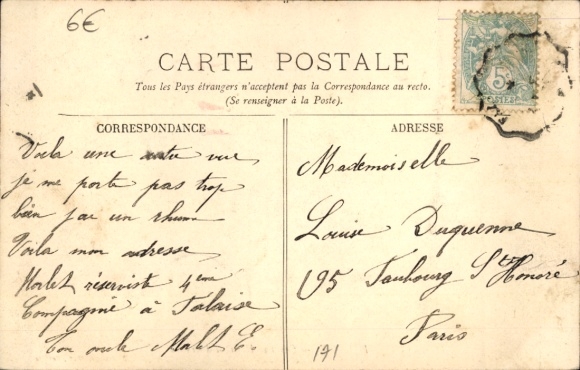 6€
CARTE POSTALE
Tous les Pays étrangers n'acceptent pas la Correspondance au recto.
(Se renseigner à la Poste).
CORRESPONDANCE
Voila une autre vue
je me porte pas trop
bien j'ai un rhume
Voila mon adresse
Morlet réserviste 4eme
Compagnie à Falaise
Ton oncle Morlet E.
ADRESSE
Mademoiselle
Louise Duquenne
195 Faubourg St Honoré
Paris
171
5c
POSTES